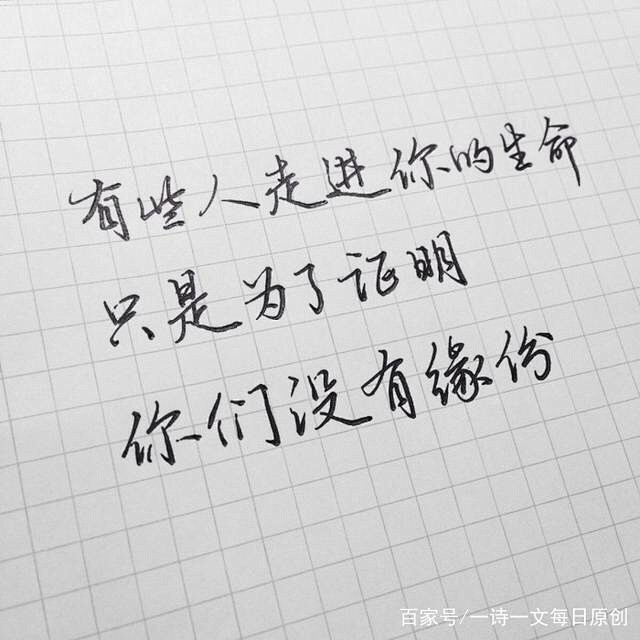 有些人走进你的生命
只是为了证明
你们没有缘份
百家号/一诗一文每日原创